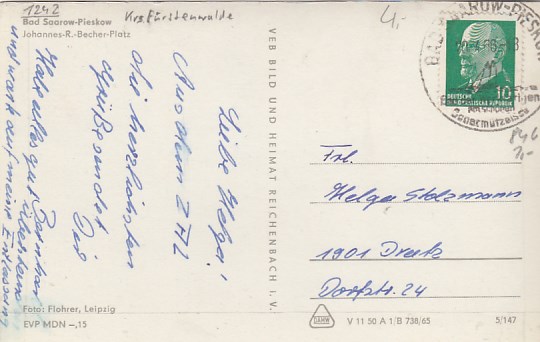 1242
Bad Saarow-Pieskow
Johannes-R.-Becher-Platz
Krs. Fürstenwalde
4,-
Liebe Helga!
Aus dem ZAL
die herzlichsten
Grüße sendet
Dir
Habe alles gut überstan
und warte auf meine Entlassung
VEB BILD UND HEIMAT REICHENBACH I. V.
BAD SAAROW-PIESKOW
10
DEUTSCHE
DEMOKRATISCHE REPUBLIK
846
3,-
Frl.
Helga Stolzmann
1901 Dreetz
Dorfstr. 24
Foto: Flohrer, Leipzig
EVP MDN –,15
V 11 50 A 1/B 738/65
5/147